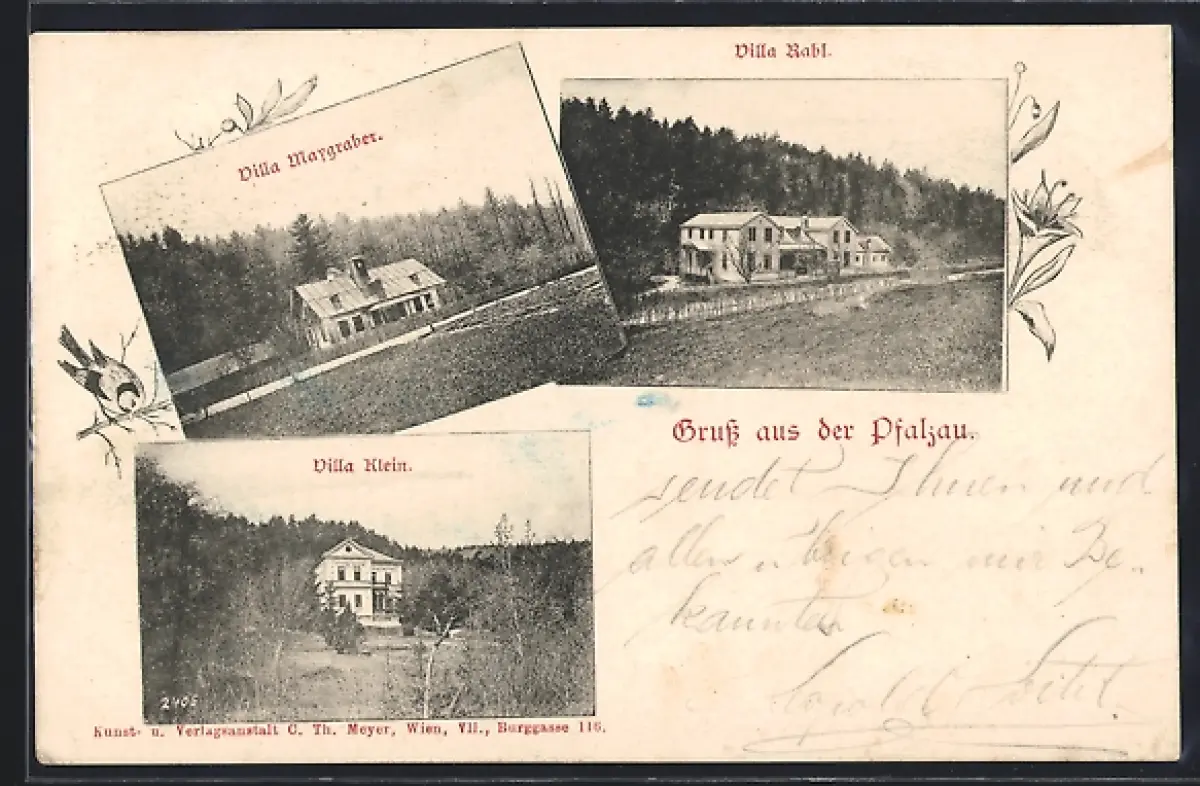 Villa Rabl.
Villa Maygraber.
Gruß aus der Pfalzau.
sendet Ihnen und
allen übrigen mir Be-
kannten
Villa Klein.
2405
Kunst- u. Verlagsanstalt C. Th. Meyer, Wien, VII., Burggasse 116.